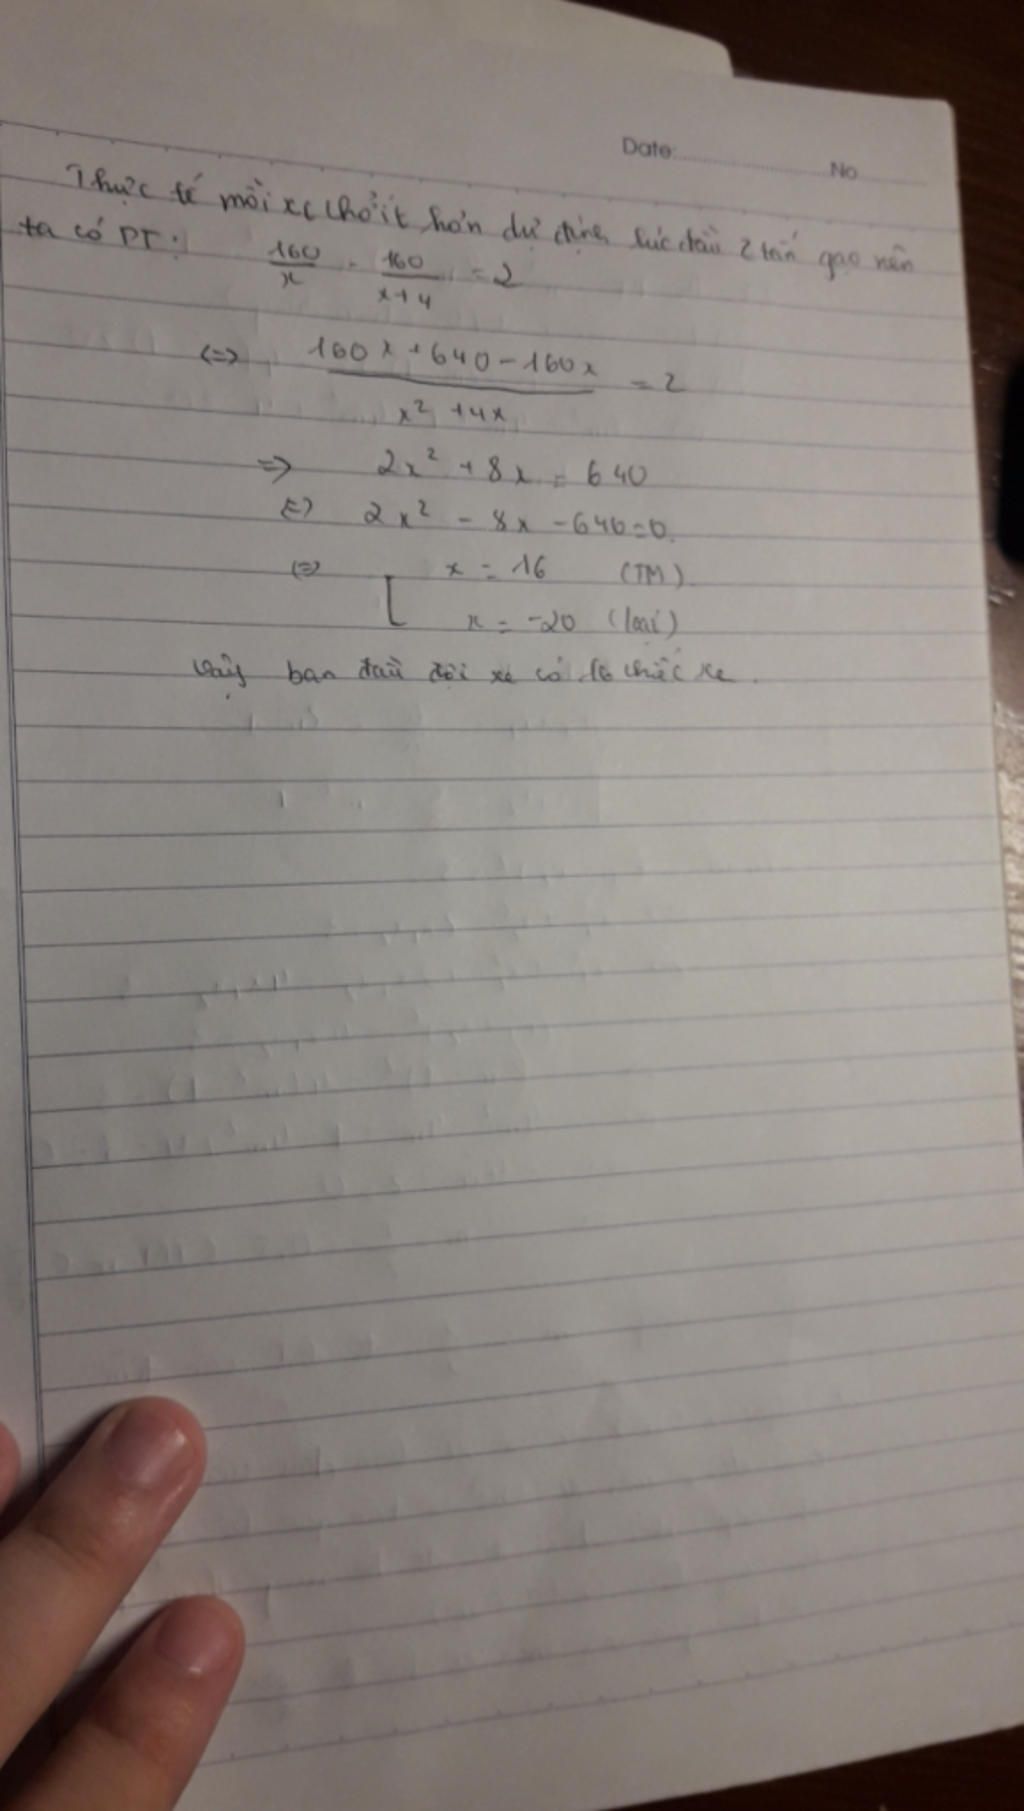 Date: No
Thực tế mỗi xe chở ít hơn dự định lúc đầu 2 tấn gạo nên
ta có PT:
160/x - 160/x+4 = 2
<=> 160x + 640 - 160x / x² + 4x = 2
=> 2x² + 8x = 640
<=> 2x² - 8x - 640 = 0.
<=> [ x = 16 (TM)
x = -20 (loại)
Vậy ban đầu đội xe có 16 chiếc xe.